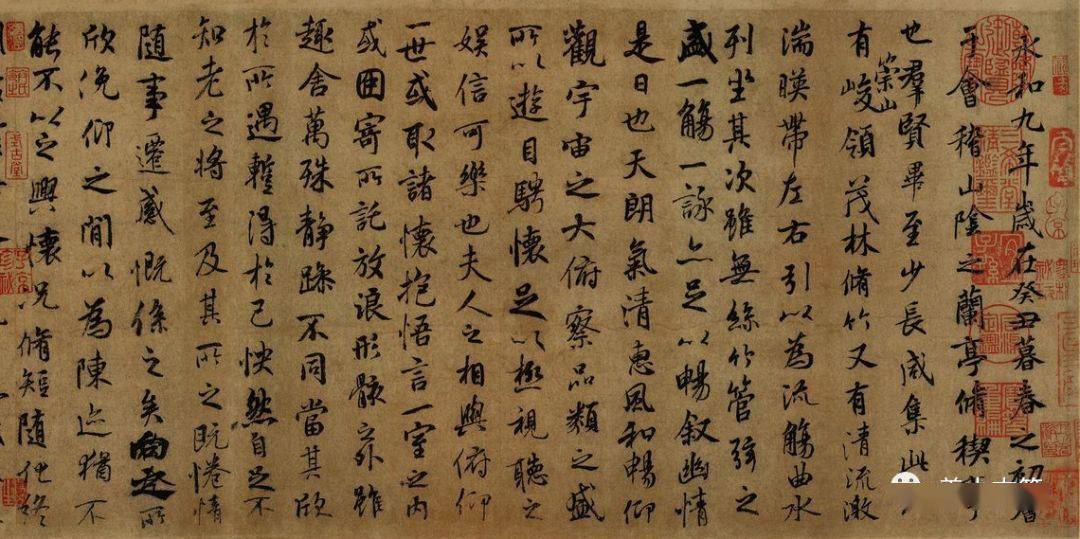 永和九年歲在癸丑暮春之初會
于會稽山陰之蘭亭脩稧事
也羣賢畢至少長咸集此
有崇山峻領茂林脩竹又有清流激
湍暎帶左右引以為流觴曲水
列坐其次雖無絲竹管弦之
盛一觴一詠亦足以暢敘幽情
是日也天朗氣清惠風和暢仰
觀宇宙之大俯察品類之盛
所以遊目騁懷足以極視聽之
娛信可樂也夫人之相與俯仰
一世或取諸懷抱悟言一室之內
或因寄所託放浪形骸之外雖
趣舍萬殊靜躁不同當其欣
於所遇蹔得於己怏然自足不
知老之將至及其所之既惓情
隨事遷感慨係之矣向之所
欣俛仰之閒以為陳迹猶不
能不以之興懷況脩短隨化終